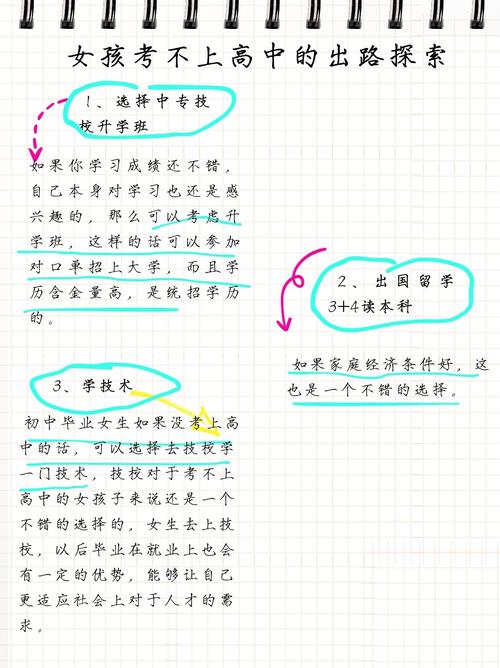 女孩考不上高中的出路探索
1、选择中专技
校升学班
如果你学习成绩还不错，
自己本身对学习也还是感
兴趣的，那么可以考虑升
学班，这样的话可以参加
对口单招上大学，而且学
历含金量高，是统招学历
的。
2、出国留学
3+4读本科
如果家庭经济条件好，这
也是一个不错的选择。
3、学技术
初中毕业女生如果没考上高
中的话，可以选择去技校学
一门技术，技校对于考不上
高中的女孩子来说还是一个
不错的选择的，女生去上技
校，以后毕业在就业上也会
有一定的优势，能够让自己
更适应社会上对于人才的需
求。